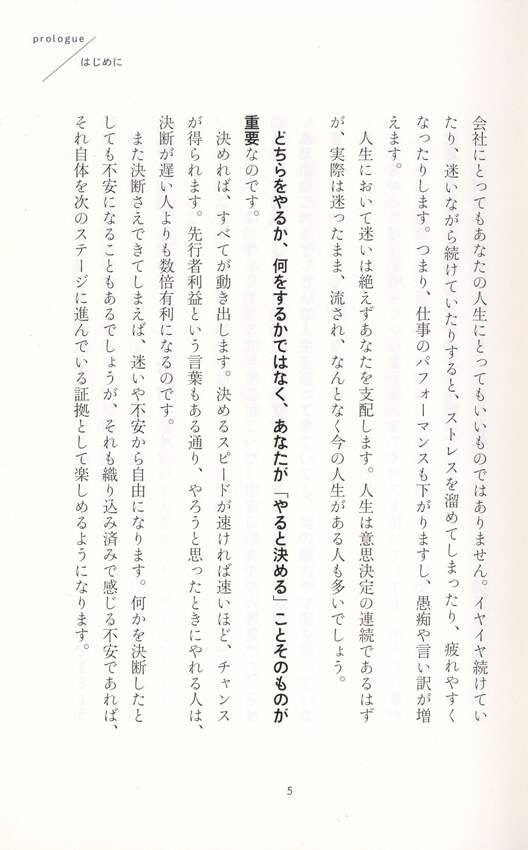 prologue
はじめに
会社にとってもあなたの人生にとってもいいものではありません。イヤイヤ続けてい
たり、迷いながら続けていたりすると、ストレスを溜めてしまったり、疲れやすく
なったりします。つまり、仕事のパフォーマンスも下がりますし、愚痴や言い訳が増
えます。
人生において迷いは絶えずあなたを支配します。人生は意思決定の連続であるはず
が、実際は迷ったまま、流され、なんとなく今の人生がある人も多いでしょう。
どちらをやるか、何をするかではなく、あなたが「やると決める」ことそのものが
重要なのです。
決めれば、すべてが動き出します。決めるスピードが速ければ速いほど、チャンス
が得られます。先行者利益という言葉もある通り、やろうと思ったときにやれる人は、
決断が遅い人よりも数倍有利になるのです。
また決断さえできてしまえば、迷いや不安から自由になります。何かを決断したと
しても不安になることもあるでしょうが、それも織り込み済みで感じる不安であれば、
それ自体を次のステージに進んでいる証拠として楽しめるようになります。
5